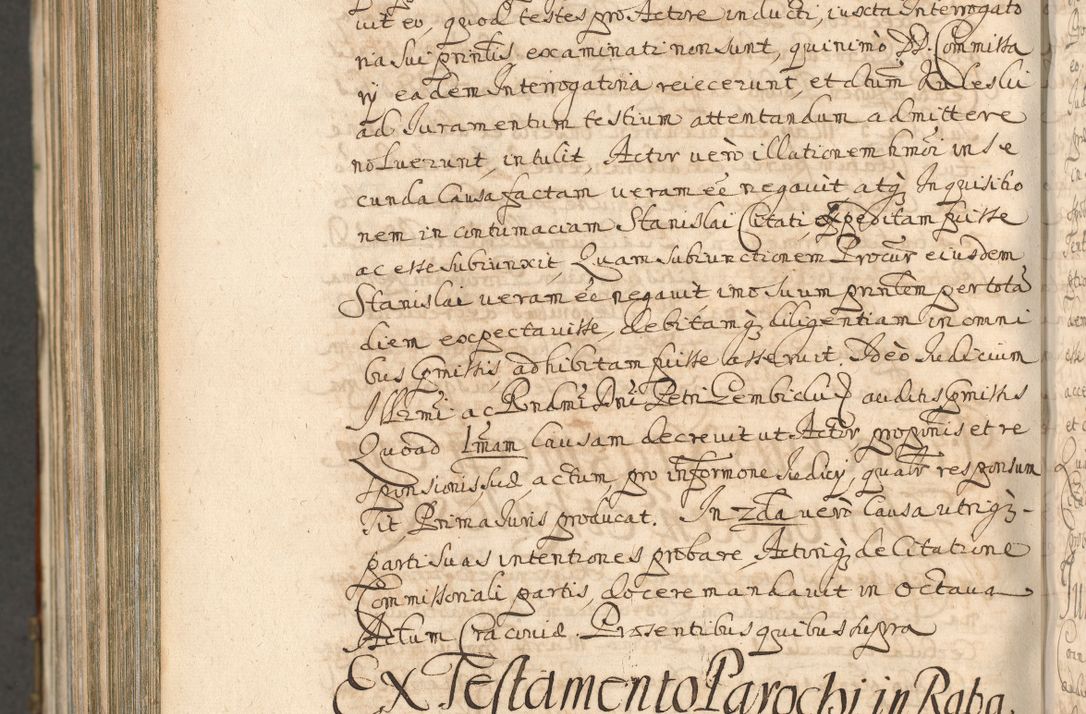 uit eo, quod testes pro Actore inducti, iuxta Interrogato
ria sui prin͠lis, examinati non sunt, quinimò DD. Commissa
rÿ eadem Interrogatoria reiecerunt, et
ad Iuramentum testium attentandum admittere
noluerunt, intulit, Actor verò illationem hm͠oi in Se
cunda Causa factam veram eē negavit atq3 Inquisitio
nem in contumaciam Stanislai Citati, expeditam fuisse
ac esse subiunxit, Quam subiunctionem Procur eiusdem
Stanislai veram eē negavit imo suum prin͠lem per totā
diem expectavisse, debitamq3 diligentiam in omni
bus p͠missis, adhibitam fuisse asseruit. Ideò Iudicium
Illr͠mi ac Rnd͠mi Dn͠i Petri Gembicki auditis p͠missis
Quoad 1mam Causam decrevit ut Actor propo͠nis et re
sponsionis suæ, actum pro infor͠mone Iudicÿ, qual͠r responsum
sit, Prima Iuris producat. In 2da verò Causa utriq3 -
parti suas intentiones probare, Actoriq3 de Citatione
Commissoriali partis, docere mandavit in Octava
Actum Cracoviæ. Præsentibus quibus supra
Ex Testamento Parochi in Raba.